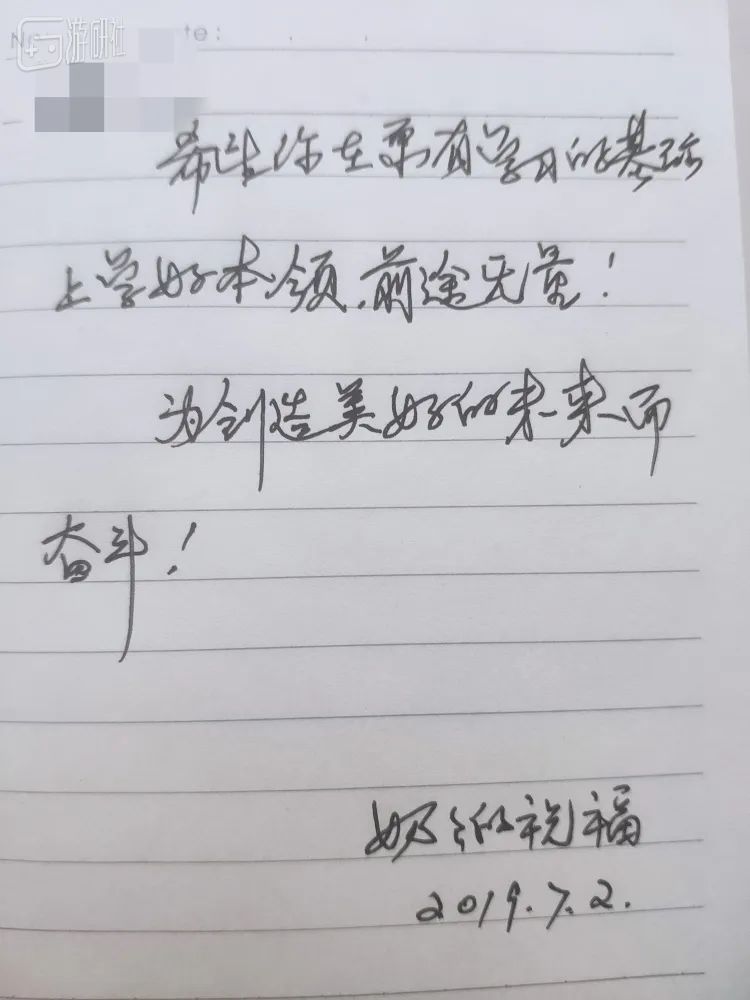 游研社
No
te:
希望你在原有学习的基础
上学好本领,前途无量!
为创造美好的未来而
奋斗!
奶奶的祝福
2019.7.2.